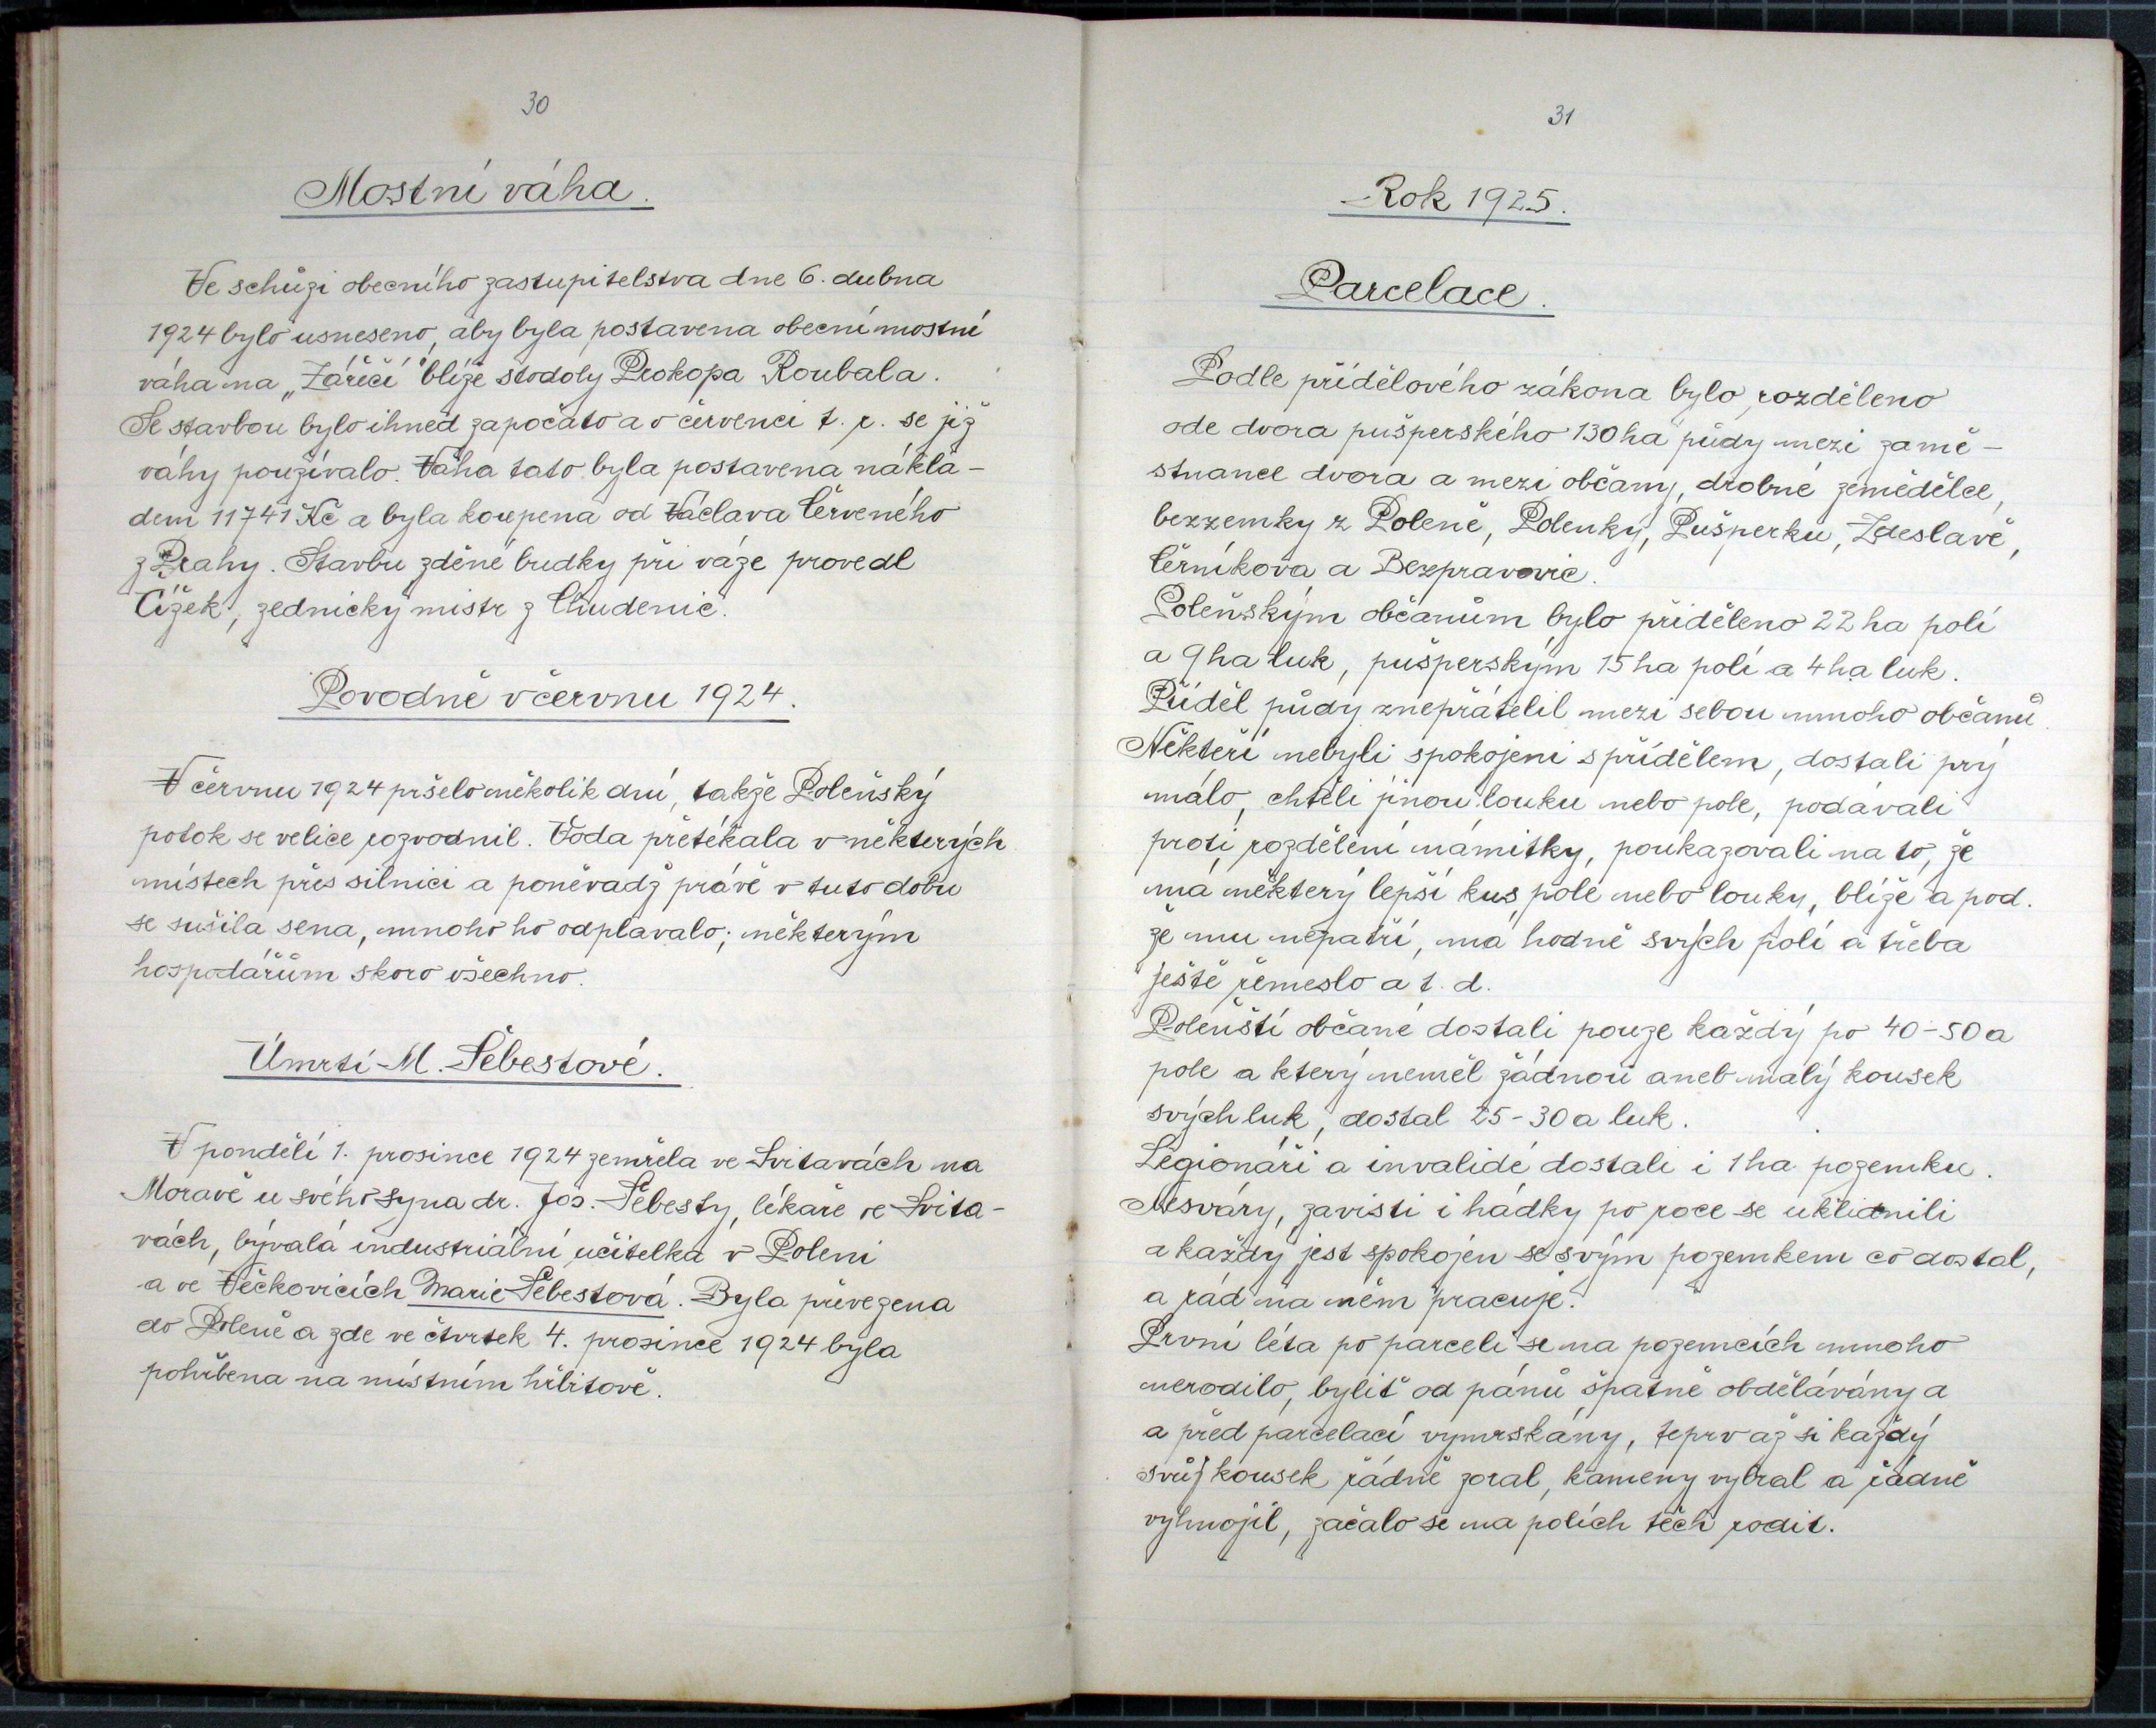 30
Mostní váha.
Ve schůzi obecního zastupitelstva dne 6. dubna
1924 bylo usneseno, aby byla postavena obecní mostní
váha na „Záříčí" blíže stodoly Prokopa Roubala.
Se stavbou bylo ihned započato a v červenci t. r. se již
váhy používalo. Váha tato byla postavena nákla-
dem 11741 Kč a byla koupena od Václava Červeného
z Prahy. Stavbu zděné budky při váze provedl
Čížek, zednický mistr z Chudenic.
Povodně v červnu 1924.
V červnu 1924 pršelo několik dní, takže Poleňský
potok se velice rozvodnil. Voda přetékala v některých
místech přes silnici a poněvadž právě v tuto dobu
se sušila sena, mnoho ho odplavalo; některým
hospodářům skoro všechno.
Úmrtí M. Šebestové.
V pondělí 1. prosince 1924 zemřela ve Svitavách na
Moravě u svého syna dr. Jos. Šebesty, lékaře ve Svita-
vách, bývalá industriální učitelka v Poleni
a ve Věckovicích Marie Šebestová. Byla převezena
do Poleně a zde ve čtvrtek 4. prosince 1924 byla
pohřbena na místním hřbitově.
31
Rok 1925.
Parcelace.
Podle přídělového zákona bylo rozděleno
ode dvora pušperského 130 ha půdy mezi zamě-
stnance dvora a mezi občany, drobné zemědělce,
bezzemky z Poleně, Polenky, Pušperku, Zdeslavě,
Černíkova a Bezpravovic.
Poleňským občanům bylo přiděleno 22 ha polí
a 9 ha luk, pušperským 15 ha polí a 4 ha luk.
Příděl půdy znepřátelil mezi sebou mnoho občanů.
Někteří nebyli spokojeni s přídělem, dostali prý
málo, chtěli jinou louku nebo pole, podávali
proti rozdělení námitky, poukazovali na to, že
má některý lepší kus pole nebo louky, blíže a pod.
že mu nepatří, má hodně svých polí a třeba
ještě řemeslo a t. d.
Poleňští občané dostali pouze každý po 40-50 a
pole a který neměl žádnou aneb malý kousek
svých luk, dostal 25-30 a luk.
Legionáři a invalidé dostali i 1 ha pozemku.
Nesváry, zavisti i hádky po roce se uklidnili
a každý jest spokojen se svým pozemkem co dostal,
a rád na něm pracuje.
První léta po parceli se na pozemcích mnoho
nerodilo, byliť od pánů špatně obdělávány a
a před parcelací vymrskány, teprv až si každý
svůj kousek řádně zoral, kameny vybral a řádně
vyhnojil, začalo se na polích těch rodit.